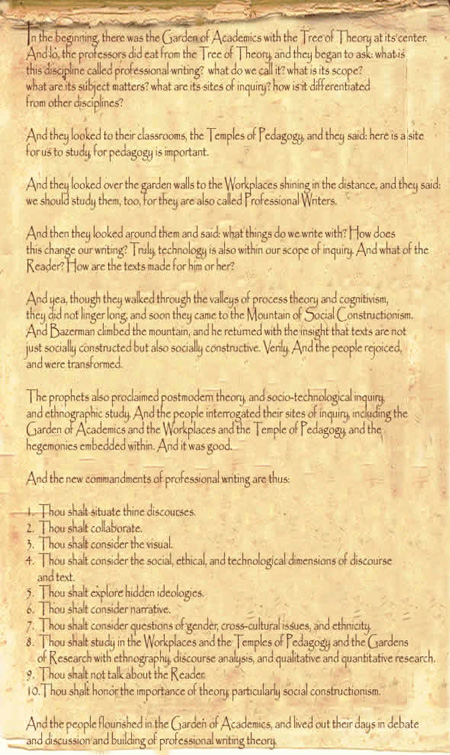 In the beginning, there was the Garden of Academics with the Tree of Theory at its center.
And lo, the professors did eat from the Tree of Theory, and they began to ask: what is
this discipline called professional writing? what do we call it? what is its scope?
what are its subject matters? what are its sites of inquiry? how is it differentiated
from other disciplines?
And they looked to their classrooms, the Temples of Pedagogy, and they said: here is a site
for us to study, for pedagogy is important.
And they looked over the garden walls to the Workplaces shining in the distance, and they said:
we should study them, too, for they are also called Professional Writers.
And then they looked around them and said: what things do we write with? How does
this change our writing? Truly, technology is also within our scope of inquiry. And what of the
Reader? How are the texts made for him or her?
And yea, though they walked through the valleys of process theory and cognitivism,
they did not linger long, and soon they came to the Mountain of Social Constructionism.
And Bazerman climbed the mountain, and he returned with the insight that texts are not
just socially constructed but also socially constructive. Verily. And the people rejoiced,
and were transformed.
The prophets also proclaimed postmodern theory, and socio-technological inquiry,
and ethnographic study. And the people interrogated their sites of inquiry, including the
Garden of Academics and the Workplaces and the Temple of Pedagogy, and the
hegemonies embedded within. And it was good.
And the new commandments of professional writing are thus:
1. Thou shalt situate thine discourses.
2. Thou shalt collaborate.
3. Thou shalt consider the visual.
4. Thou shalt consider the social, ethical, and technological dimensions of discourse
and text.
5. Thou shalt explore hidden ideologies.
6. Thou shalt consider narrative.
7. Thou shalt consider questions of gender, cross-cultural issues, and ethnicity.
8. Thou shalt study in the Workplaces and the Temples of Pedagogy and the Gardens
of Research with ethnography, discourse analysis, and qualitative and quantitative research.
9. Thou shalt not talk about the Reader.
10. Thou shalt honor the importance of theory, particularly social constructionism.
And the people flourished in the Garden of Academics, and lived out their days in debate
and discussion and building of professional writing theory.